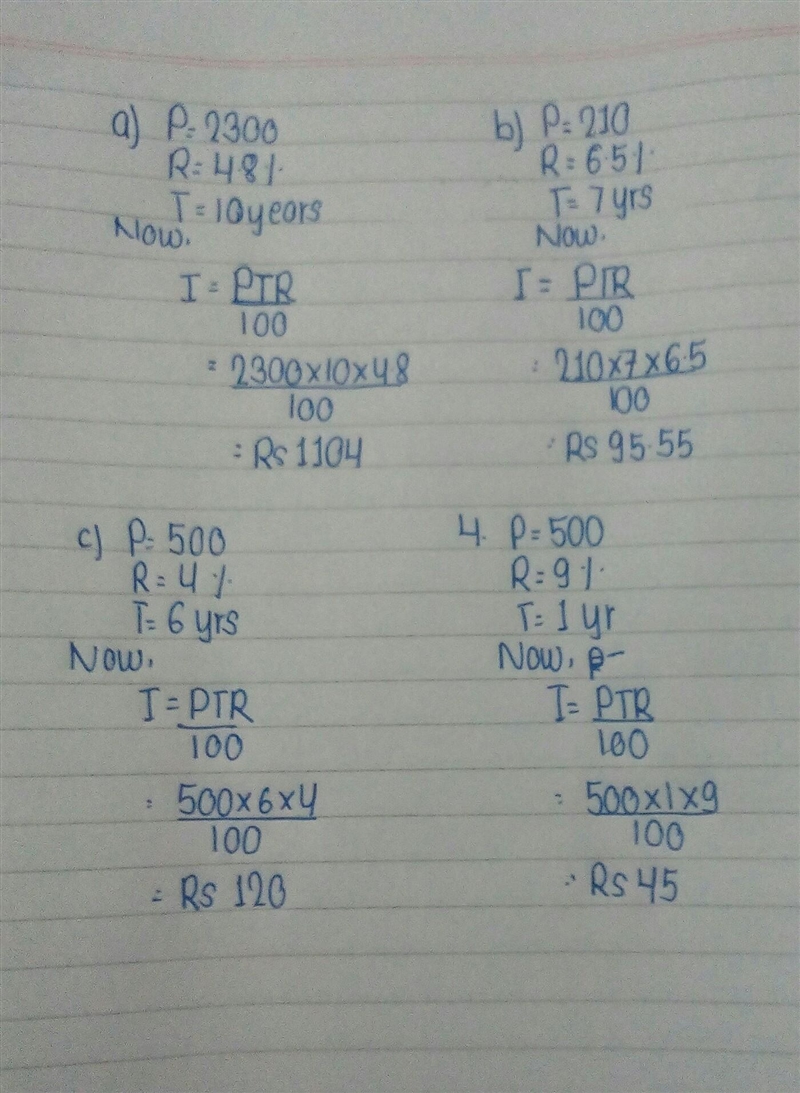 a) P= 2300
R= 4.8%
T= 10 years
Now,
I = PTR
100
= 2300×10×48
100
= Rs 1104
b) P= 210
R= 6.5%
T= 7 yrs
Now.
I = PTR
100
= 210×7×6.5
100
= Rs 95.55
c) P= 500
R= 4%
T= 6 yrs
Now,
I = PTR
100
= 500×6×4
100
= Rs 120
4. P= 500
R= 9%
T= 1 yr
Now, p-
I= PTR
100
= 500×1×9
100
∴ Rs 45